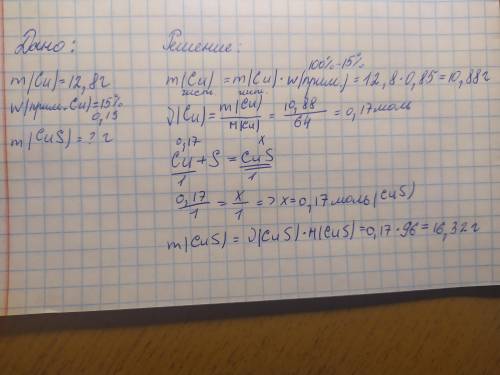 Дано:
m(Cu)=12,8г
w(прим.Cu)=15%
0,15
m(CuS)=? г
Решение:
100%-15%
m(Cu) = m(Cu)·w(прим.)=12,8·0,85=10,88г
чист.
ν(Cu)=m(Cu)/M(Cu)=10,88/64=0,17моль
0,17 x
Cu+S=CuS
1 1
0,17/1=x/1=>x=0,17моль(CuS)
m(CuS)=ν(CuS)·M(CuS)=0,17·96=16,32г